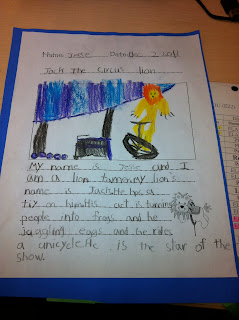 Name Jesse Date Dec 2 2011
Jack The Circus lion
My name is Jesse and I
am a lion tamer. My lion's
name is Jack. He has a
his act is turning
people into frogs and he
juggling eggs and he rides
a unicycle. He is the star of the
show.